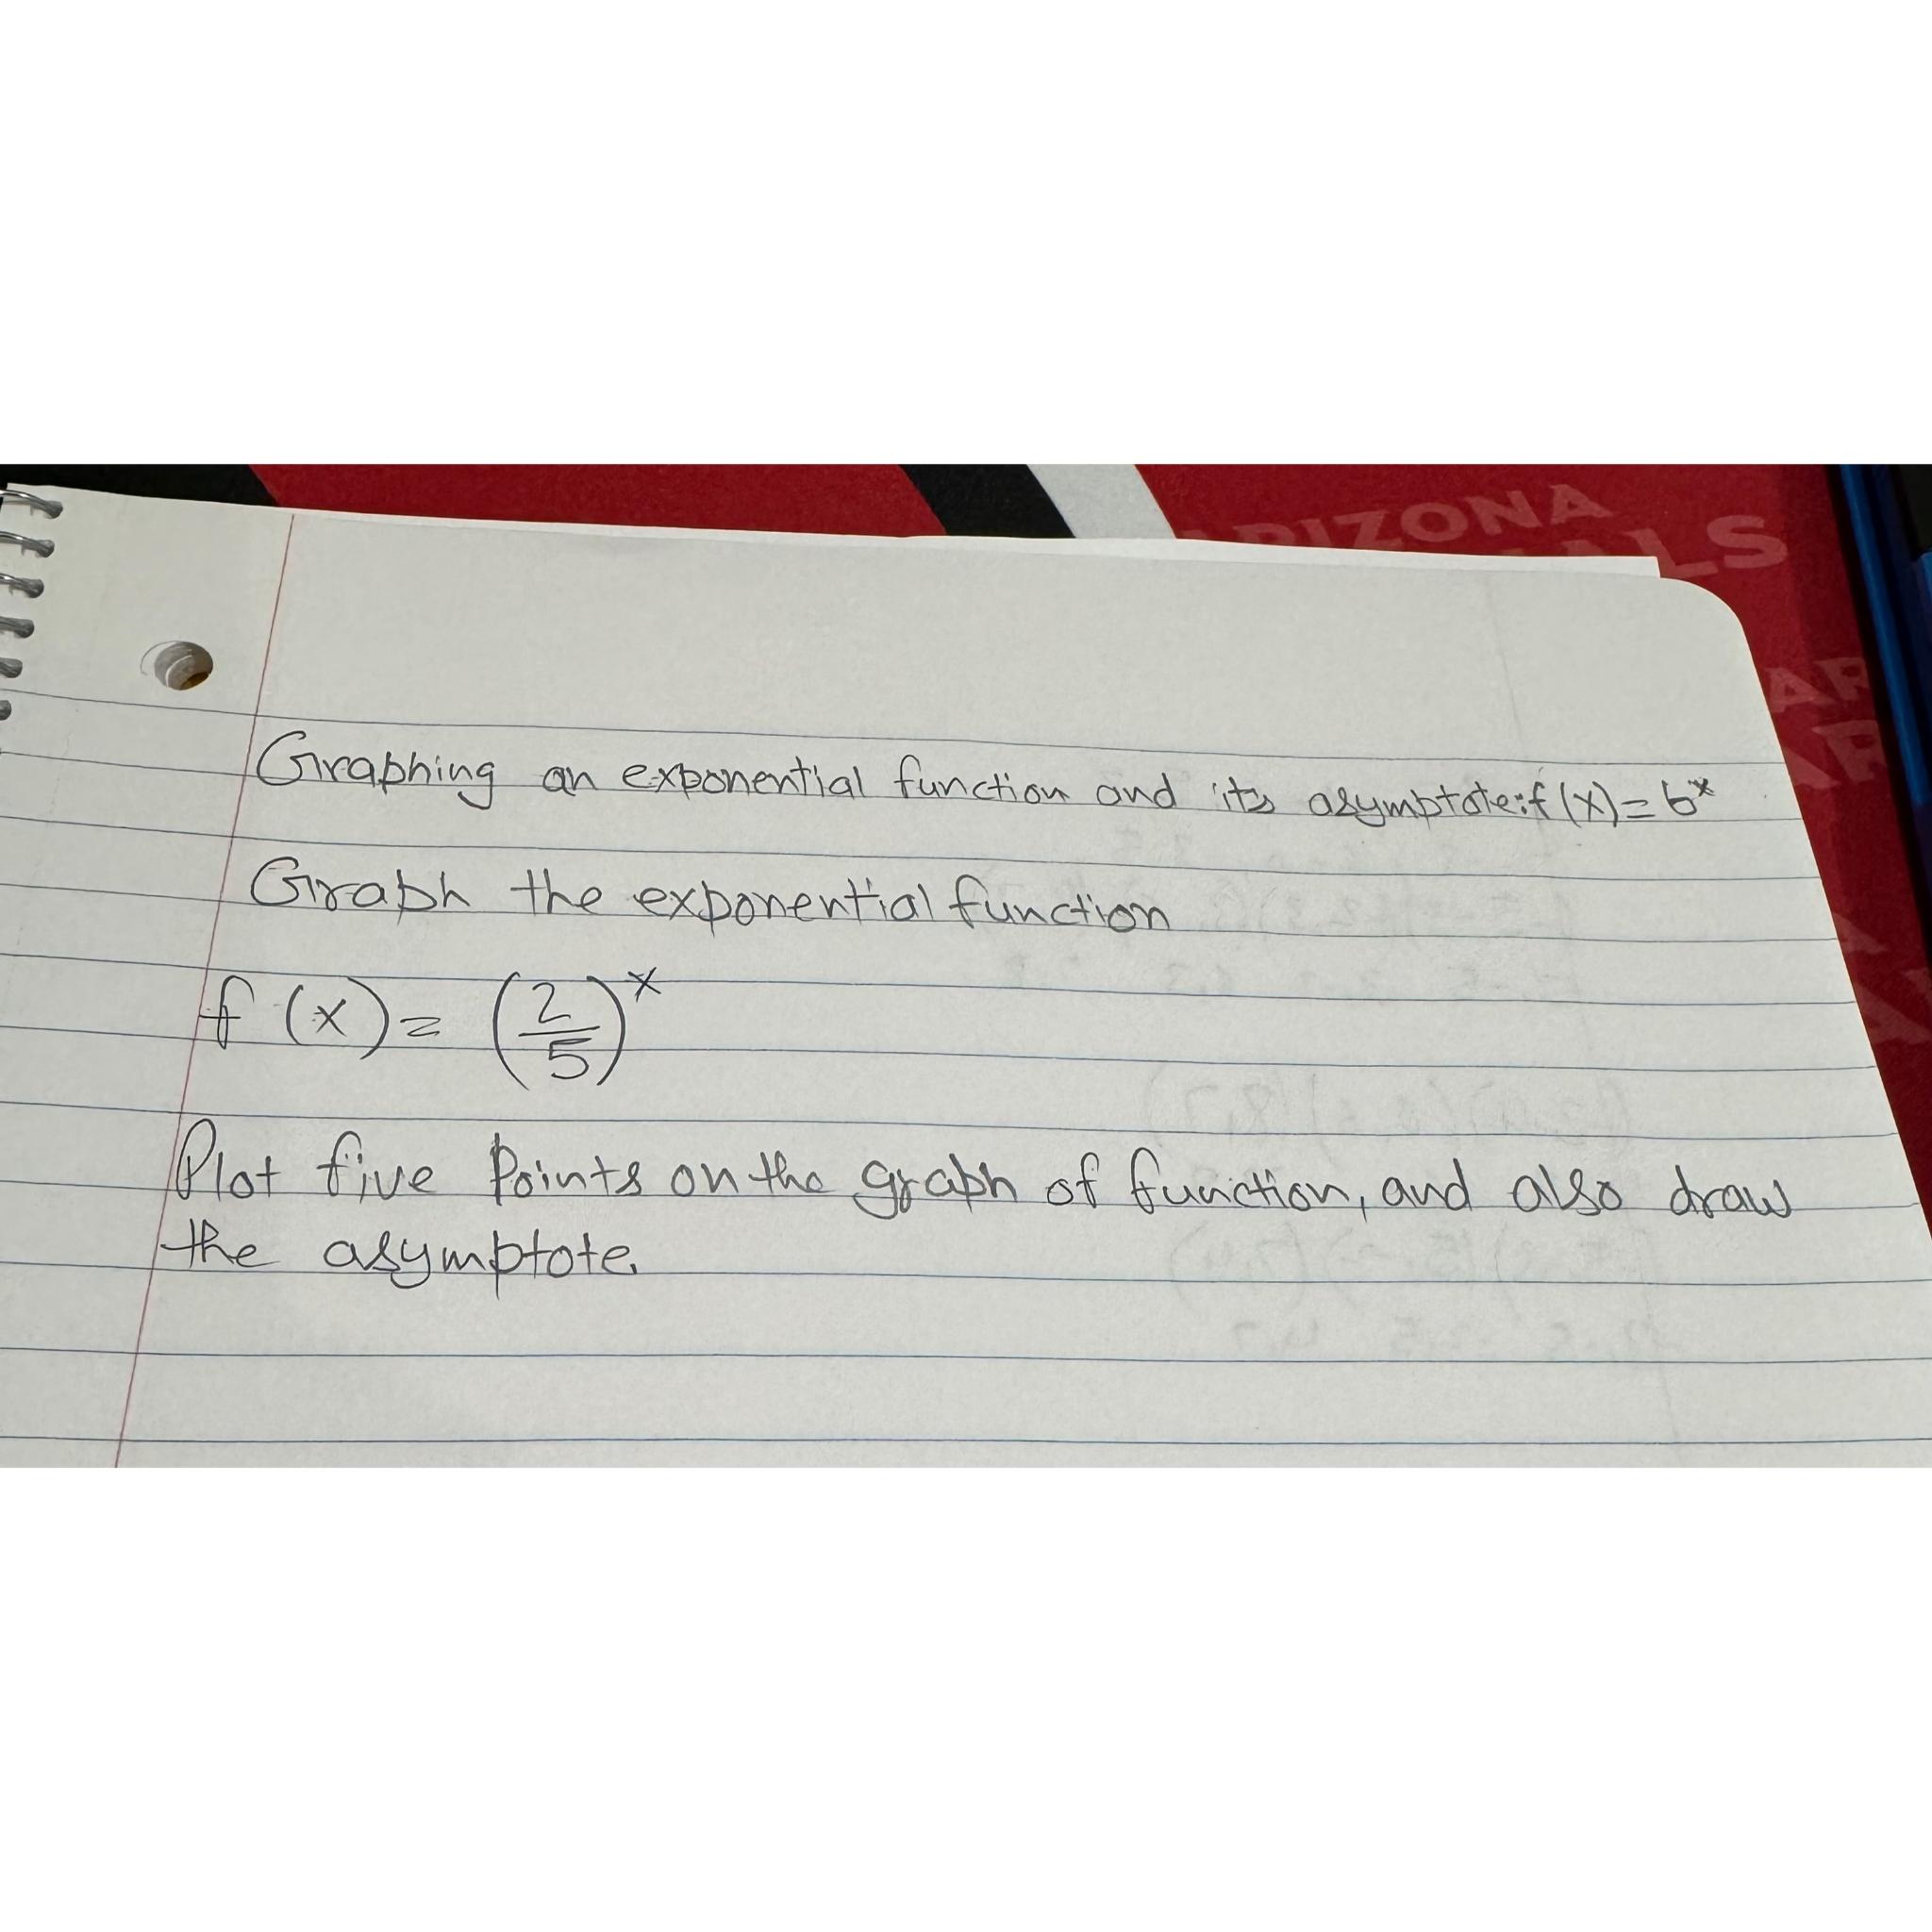 ARIZONA
Graphing an exponential function and its asymptote: f(x) = b^x
Graph the exponential function
f(x) = (2/5)^x
Plot five Points on the graph of function, and also draw
the asymptote.